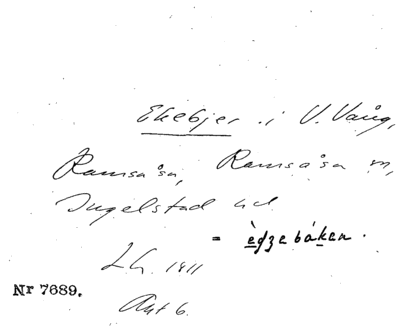 Ekebjer i V. Vång,
Ramsåsa, Ramsåsa sn,
Ingelstad hd
= èdzebáken.
1911
Nr 7689.
Akt 6.